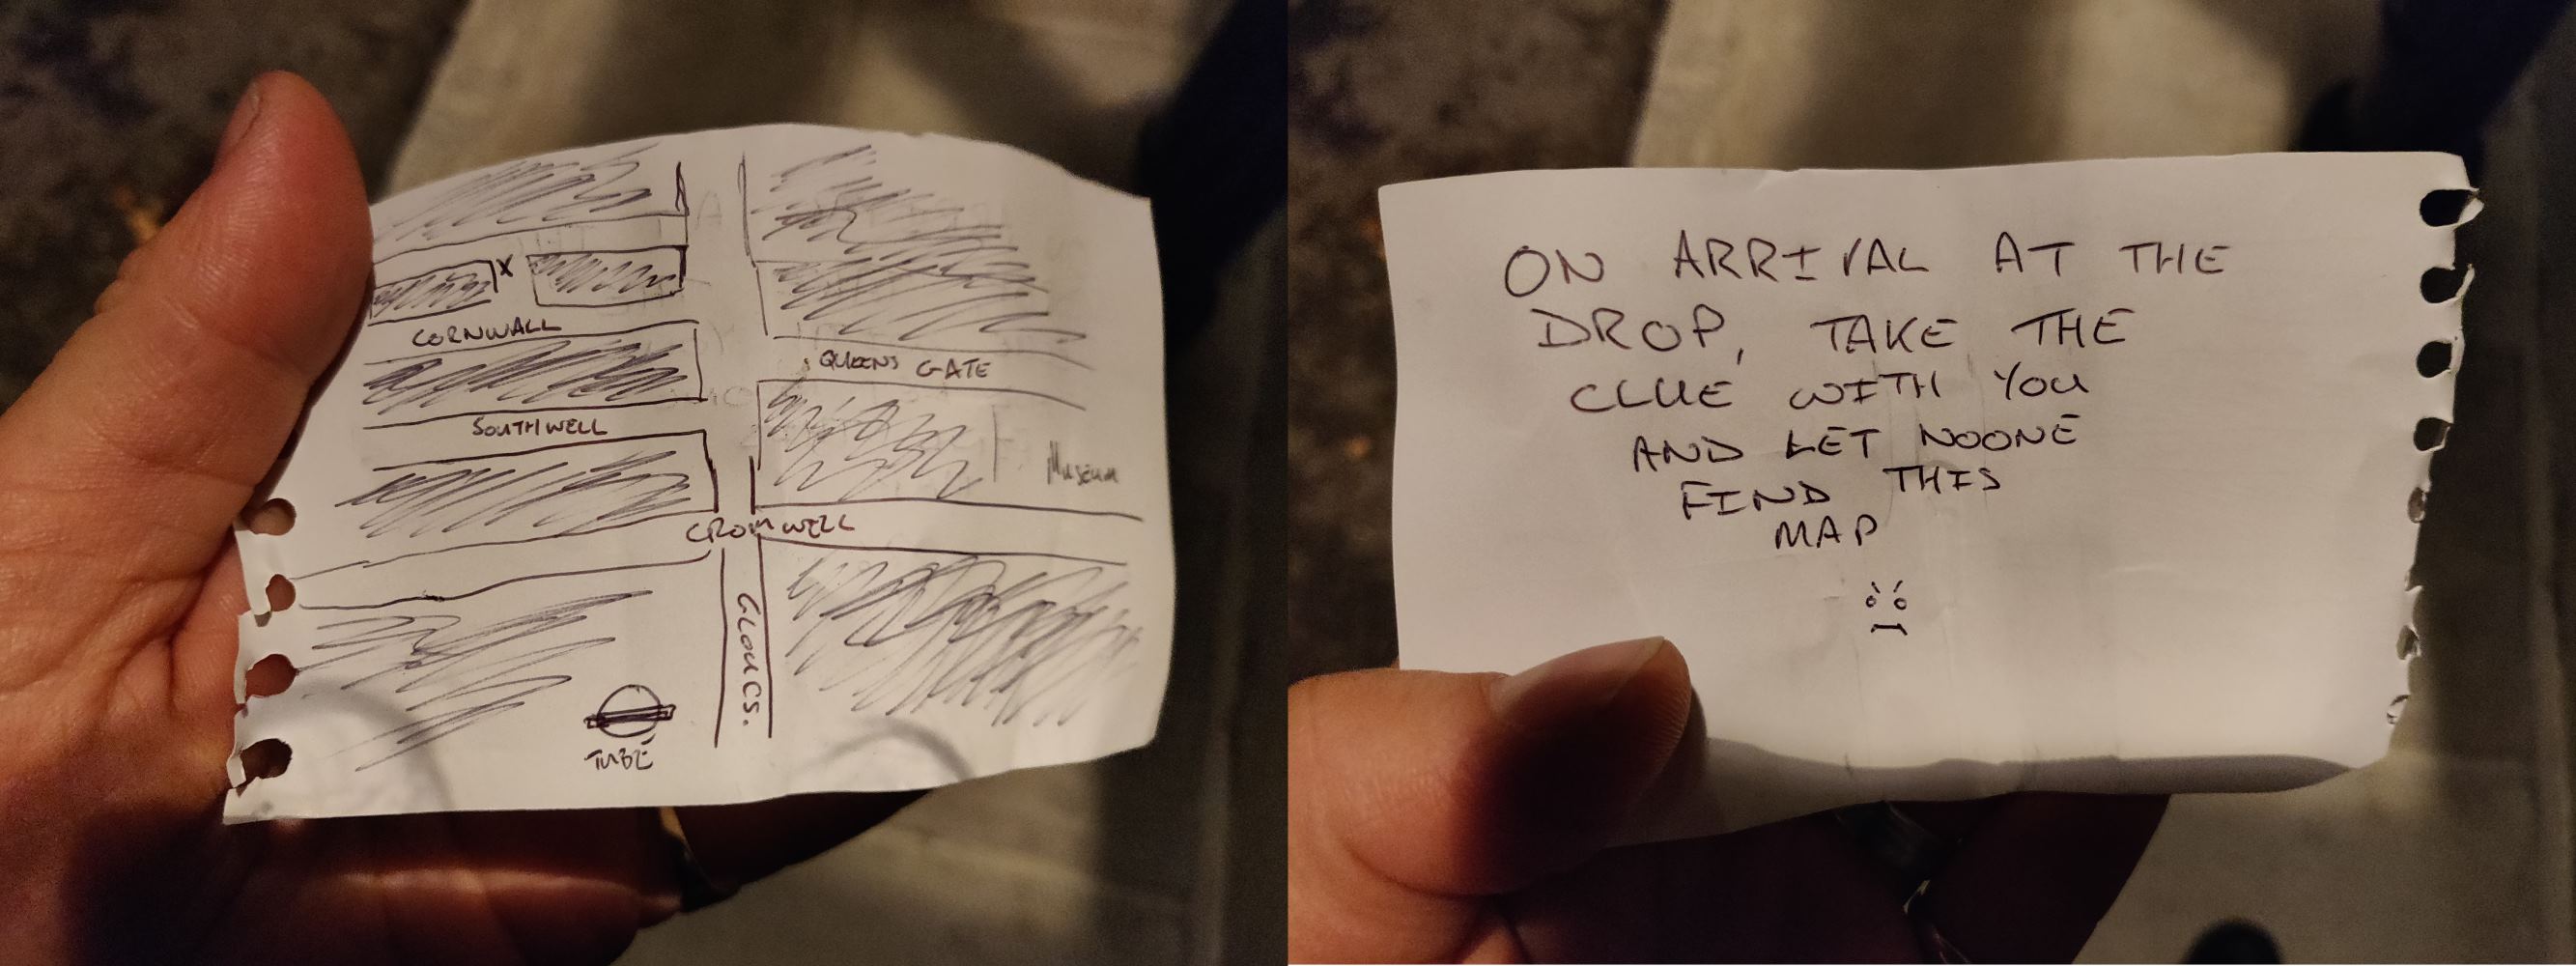 X
CORNWALL
QUEENS GATE
SOUTHWELL
Museum
CROMWELL
GLOUCS.
TUBE
ON ARRIVAL AT THE
DROP, TAKE THE
CLUE WITH YOU
AND LET NOONE
FIND THIS
MAP